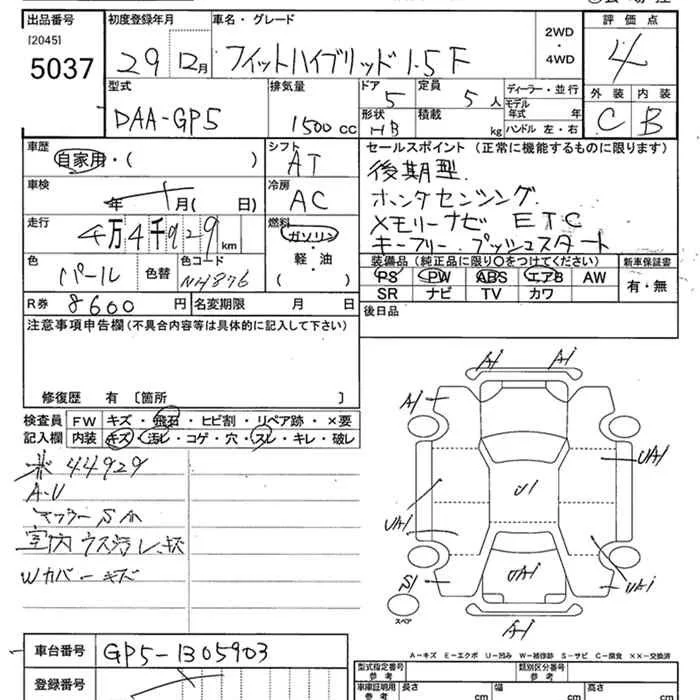 出品番号 初度登録年月 車名・グレード 評価点
[2045]
5037 29 12月 フィットハイブリッド 1.5F 2WD・4WD 4
型式 排気量 ドア 定員 ディーラー・並行 外装 内装
DAA-GP5 1500cc 5 5人 モデル年式 年 C B
形状 積載 ハンドル 左・右
HB kg
車歴 シフト セールスポイント (正常に機能するものに限ります)
自家用・( ) AT 後期型
車検 冷房 ホンダセンシング
年 月( 日) AC メモリーナビ ETC
走行 燃料 キーフリー プッシュスタート
4万4千929km ガソリン
色 色替 色コード ・軽・油 ( )
パール NH876
装備品 (純正品に限り○をつけてください) 新車保証書
PS PW ABS エアB AW 有・無
SR ナビ TV カワ
R券 8600円 名変期限 月 日 後日品
注意事項申告欄 (不具合内容等は具体的に記入して下さい)
修復歴 有 〔箇所 〕
検査員 FW キズ・飛石・ヒビ割・リペア跡・×要
記入欄 内装 キズ・汚レ・コゲ・穴・スレ・キレ・破レ
44929
A-U
マフラーSA
室内ウス汚レ、キズ
Wカバーキズ
A1 A1
A1
UA1
U1
UA1
UA1
UA1
S1
A1
スペア
A-キズ E-エクボ U-凹み W-補修跡 S-サビ C-腐食 ××-交換済
車台番号 GP5-1305903
登録番号
型式指定番号 参考 類別区分番号 参考
車庫証明用 参考 長さ cm 幅 cm 高さ cm